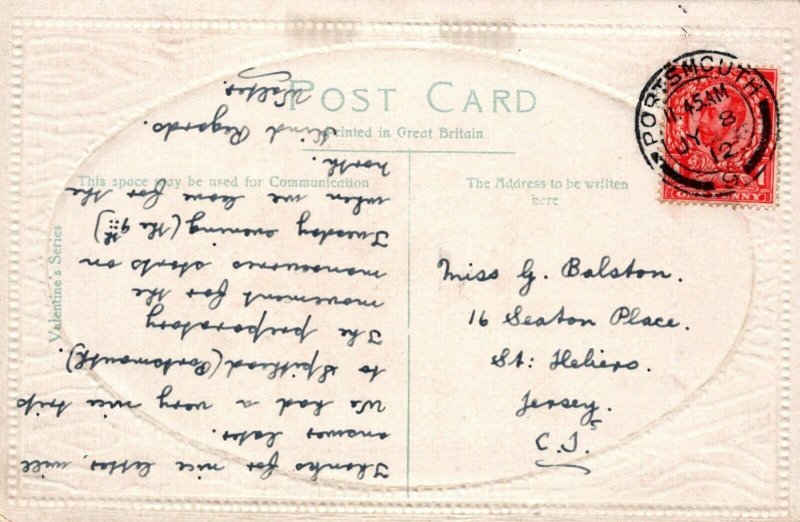 POST CARD
Printed in Great Britain
This space may be used for Communication
The Address to be written
here
Valentine's Series
PORTSMOUTH
11.45 AM
JY 8
12
Thanks for nice letter, will
answer later.
We had a very nice trip
to Spithead (Portsmouth).
The preparatory
movement for the
manoeuvres starts on
Tuesday evening (the 9th)
when we leave for the
north.
Kind Regards.
Walter.
Miss G. Balston.
16 Seaton Place.
St: Heliers.
Jersey.
C.Is